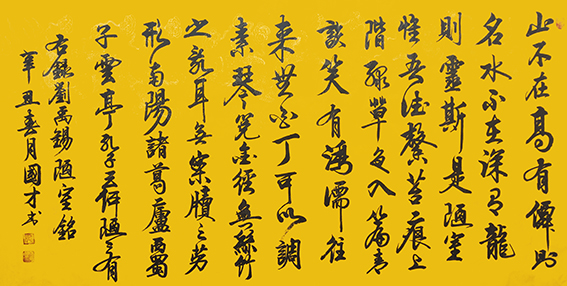 山不在高有僊則
名水不在深有龍
則靈斯是陋室
惟吾德馨苔痕上
階綠草色入簾青
談笑有鴻儒往
来無白丁可以調
素琴閱金經無絲竹
之亂耳無案牘之勞
形南陽諸葛廬西蜀
子雲亭孔子云何陋之有
右錄劉禹錫陋室銘
辛丑春月國才书